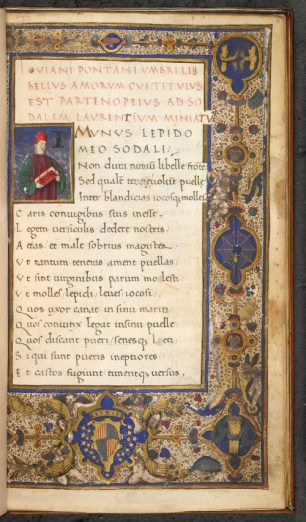 IOVIANI PONTANI UMBRI LIB
BELLUS AMORUM CUI TITULUS
EST PARTENOPEIUS AD SO
DALEM LAURENTIUM MINIATU
I MUNUS LEPIDO
MEO SODALI
Non
Sed
Inter blandicias iocosq; molles
Caris coniugibus suis inesse.
Legem versiculis dedere nostris
Aetas. et male sobrius magister
Ut tantum teneras ament puellas.
Ut sint virginibus parum molesti
Ut molles lepidi, leues iocosi.
Quos uxor canat in sinu mariti
Quos coniunx legat in sinu puelle
Quos discant pueri senesq;
Si qui sunt pueris ineptiores
Et castos fugiunt timentq; versus.